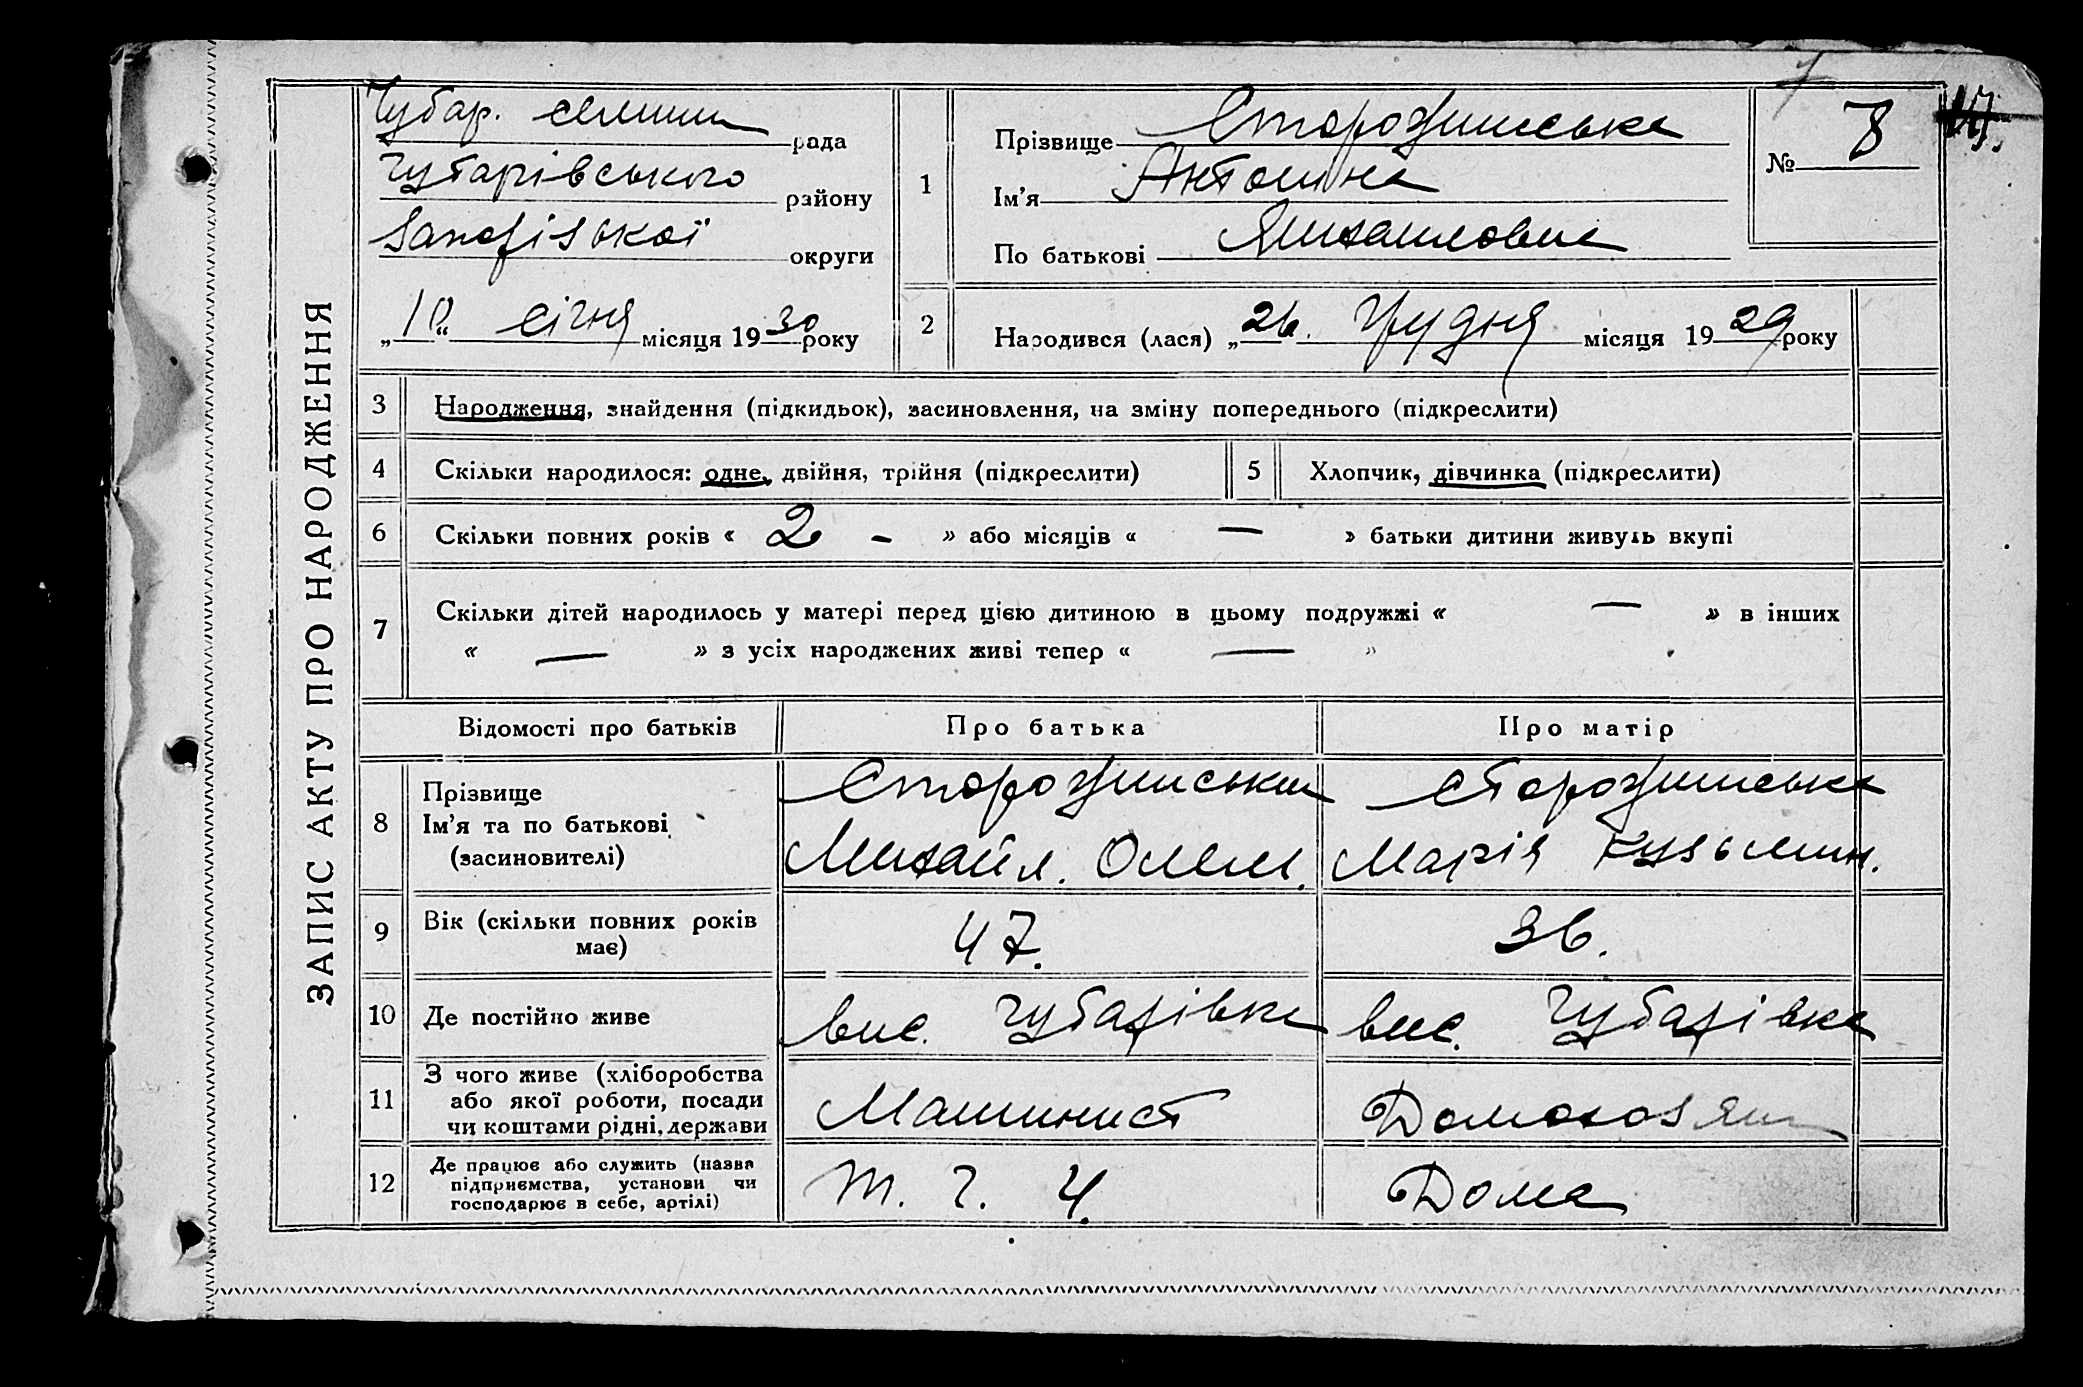 ЗАПИС АКТУ ПРО НАРОДЖЕННЯ
Чубар. селищн рада
Чубарівського району
Запорізької округи
„10“ січня місяця 1930 року
1
Прізвище Сторожинська
Ім'я Антонина
По батькові Михаиловна
№ 8
2
Народився (лася) „26. грудня місяця 1929 року
3 Народження, знайдення (підкидьок), засиновлення, на зміну попереднього (підкреслити)
4 Скільки народилося: одне, двійня, трійня (підкреслити)
5 Хлопчик, дівчинка (підкреслити)
6 Скільки повних років « 2 - » або місяців « — » батьки дитини живуть вкупі
7 Скільки дітей народилось у матері перед цією дитиною в цьому подружжі « — » в інших
« — » з усіх народжених живі тепер « — »
Відомості про батьків Про батька Про матір
8 Прізвище
Ім'я та по батькові
(засиновителі)
Сторожинський
Михайл. Олем.
Сторожинська
Марія Кузьмин.
9 Вік (скільки повних років
має)
47.
36.
10 Де постійно живе
вис. Чубарівка
вис. Чубарівка
11 З чого живе (хліборобства
або якої роботи, посади
чи коштами рідні, держави
Машинист
12 Де працює або служить (назва
підприємства, установи чи
господарює в себе, артілі)
Дома